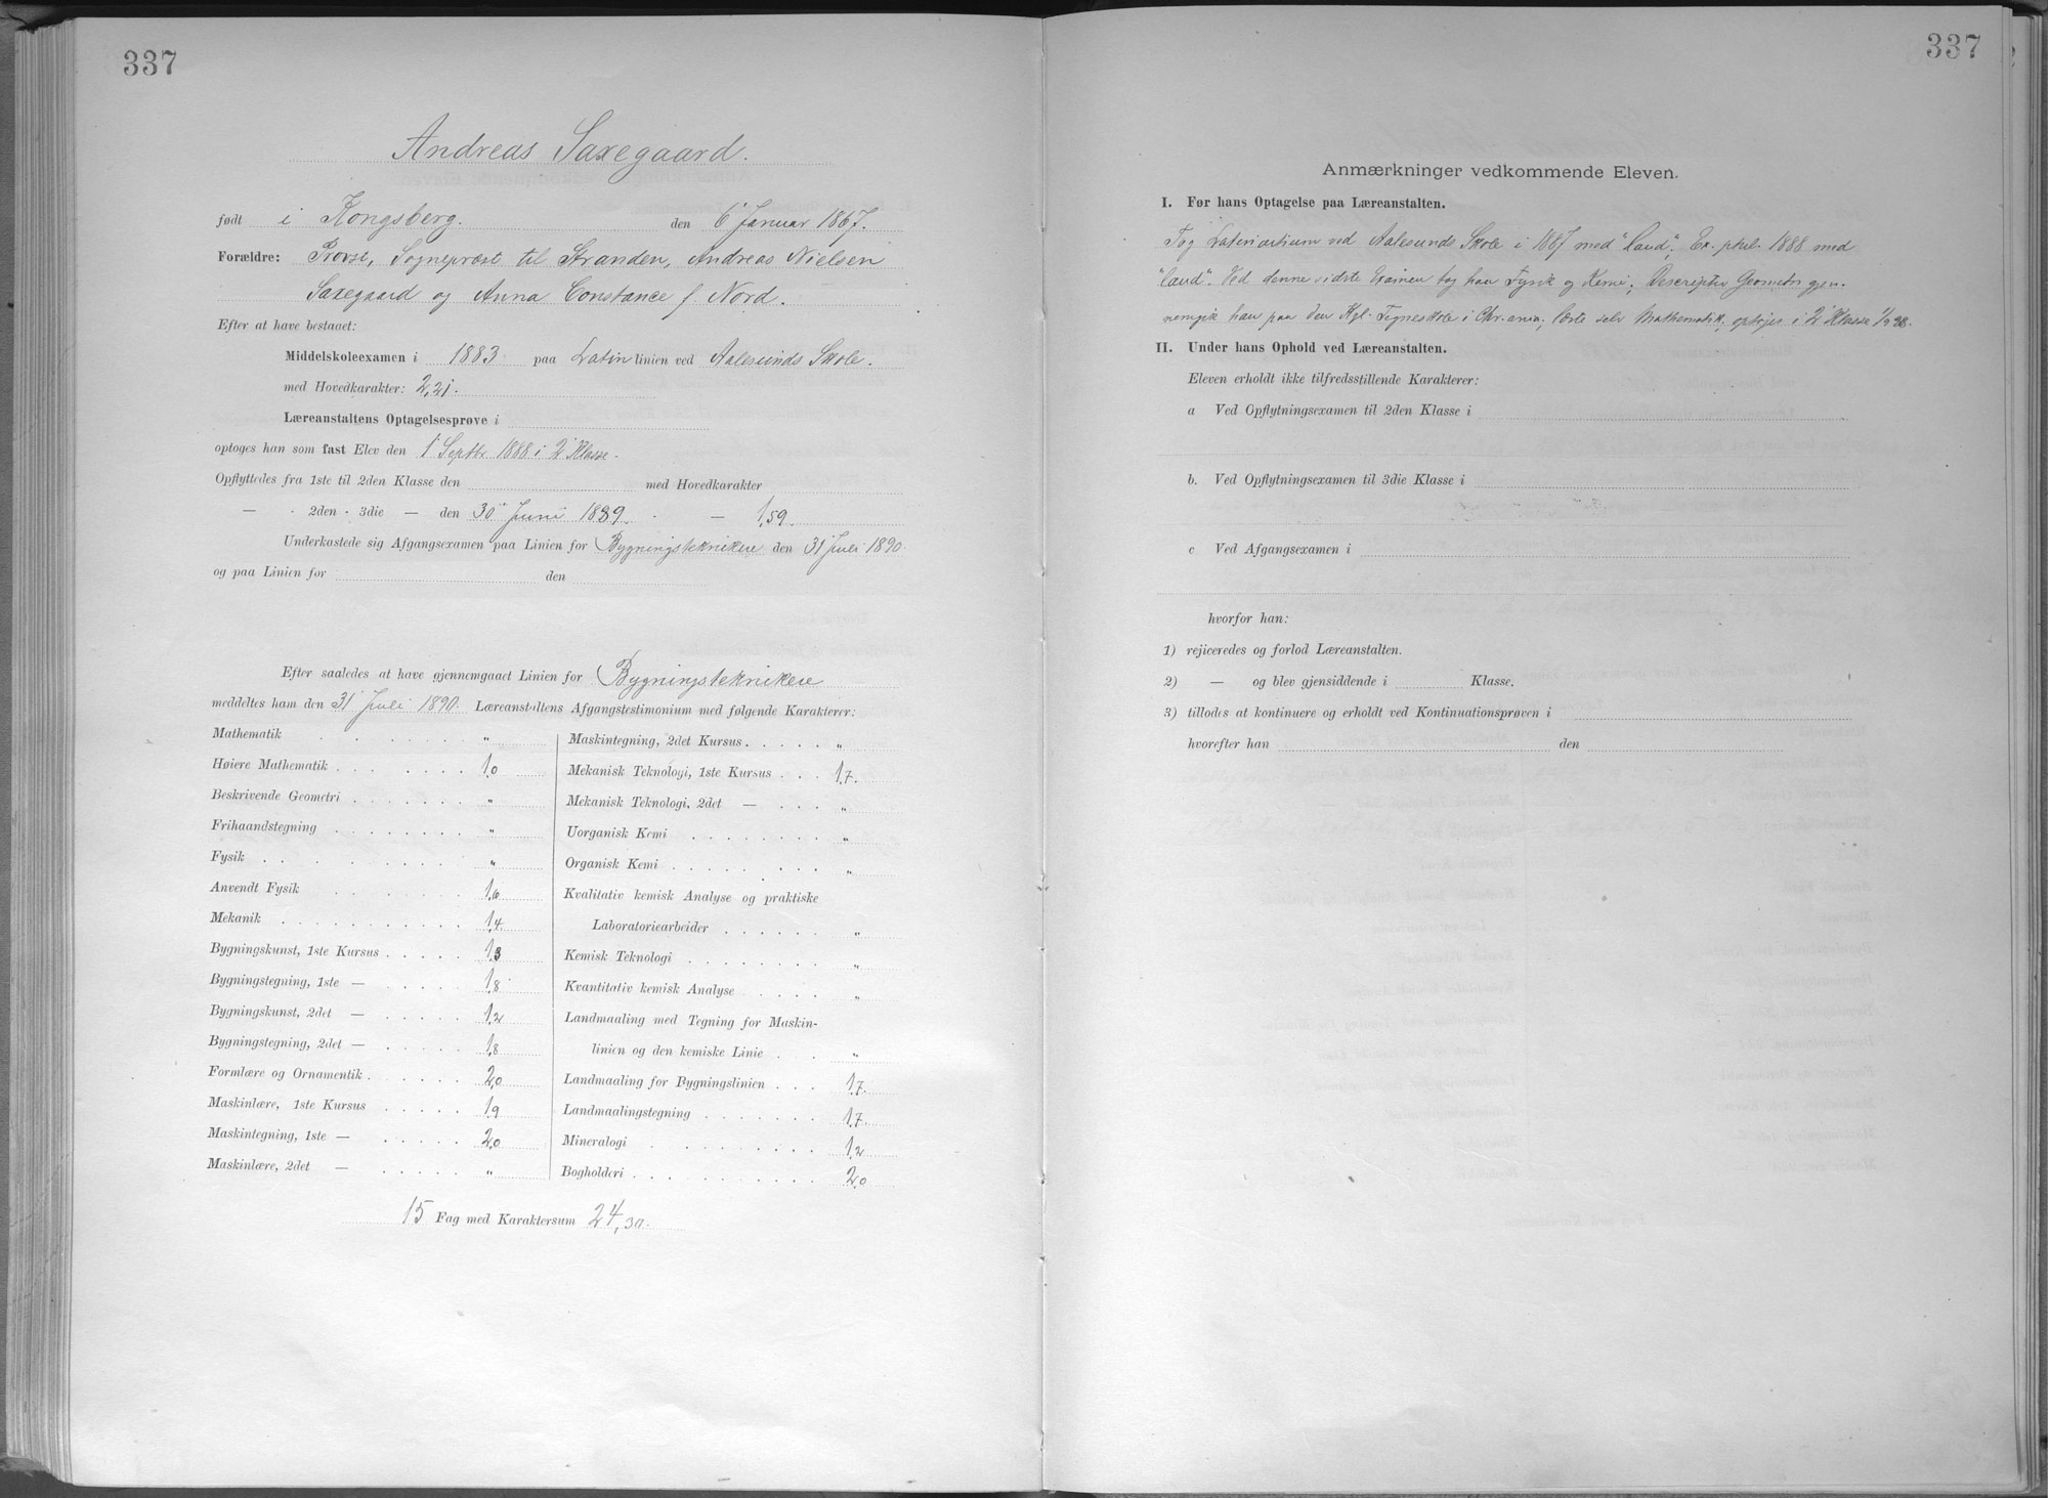 337
Andreas Saxegaard.
født i Kongsberg. den 6' Januar 1867.
Forældre: Provst, Sognepræst til Stranden, Andreas Nielsen
Saxegaard og Anna Constance f Nord.
Efter at have bestaaet:
Middelskoleexamen i 1883 paa Latin linien ved Aalesunds Skole.
med Hovedkarakter: 2,21.
Læreanstaltens Optagelsesprøve i
optoges han som fast Elev den 1' Septbr 1888 i 2' Klasse.
Opflyttedes fra 1ste til 2den Klasse den med Hovedkarakter
— · 2den · 3die — den 30' Juni 1889. · — 1,59.
Underkastede sig Afgangsexamen paa Linien for Bygningsteknikere den 31' Juli 1890.
og paa Linien for den
Efter saaledes at have gjennemgaaet Linien for Bygningsteknikere
meddeltes ham den 31' Juli 1890. Læreanstaltens Afgangstestimonium med følgende Karakterer:
Mathematik "
Høiere Mathematik 1,0
Beskrivende Geometri "
Frihaandstegning "
Fysik "
Anvendt Fysik 1,6
Mekanik 1,4
Bygningskunst, 1ste Kursus 1,3
Bygningstegning, 1ste — 1,8
Bygningskunst, 2det — 1,2
Bygningstegning, 2det — 1,8
Formlære og Ornamentik 2,0
Maskinlære, 1ste Kursus 1,9
Maskintegning, 1ste — 2,0
Maskinlære, 2det — "
Maskintegning, 2det Kursus "
Mekanisk Teknologi, 1ste Kursus 1,7.
Mekanisk Teknologi, 2det — "
Uorganisk Kemi "
Organisk Kemi "
Kvalitativ kemisk Analyse og praktiske
Laboratoriearbeider "
Kemisk Teknologi "
Kvantitativ kemisk Analyse "
Landmaaling med Tegning for Maskin-
linien og den kemiske Linie "
Landmaaling for Bygningslinien 1,7.
Landmaalingstegning 1,7.
Mineralogi 1,2
Bogholderi 2,0
15 Fag med Karaktersum 24,30.
337
Anmærkninger vedkommende Eleven.
I. Før hans Optagelse paa Læreanstalten.
Tog ved Aalesunds Skole i 1887 med "laud"; Ex. phil. 1888 med
"laud". Ved denne sidste Examen tog han Fysik og Kemi; Descriptiv Geometri gjen-
nemgik han paa den Kgl. Tegneskole i Chr.ania; læste selv Mathematik; optoges i 2' Klasse
II. Under hans Ophold ved Læreanstalten.
Eleven erholdt ikke tilfredsstillende Karakterer:
a Ved Opflytningsexamen til 2den Klasse i
b. Ved Opflytningsexamen til 3die Klasse i
c Ved Afgangsexamen i
hvorfor han:
1) rejiceredes og forlod Læreanstalten.
2) — og blev gjensiddende i Klasse.
3) tillodes at kontinuere og erholdt ved Kontinuationsprøven i
hvorefter han den